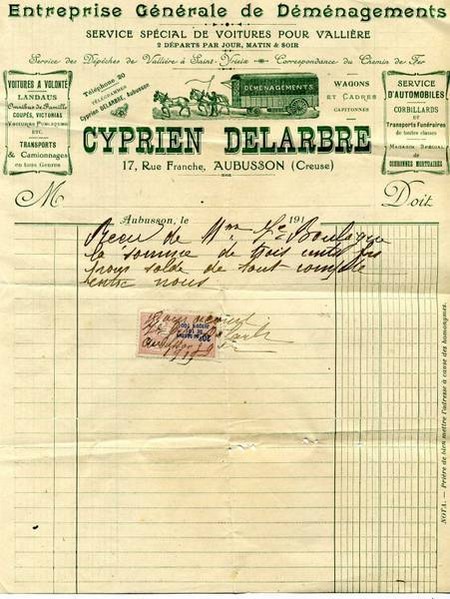 Entreprise Générale de Déménagements
SERVICE SPÉCIAL DE VOITURES POUR VALLIÈRE
2 DÉPARTS PAR JOUR, MATIN & SOIR
Service des Dépêches de Vallière à Saint-Yrieix — Correspondance du Chemin de Fer
VOITURES A VOLONTÉ
LANDAUS
Omnibus de Famille
COUPÉS, VICTORIAS
Voitures Publiques
ETC.
TRANSPORTS
& Camionnages
en tous Genres
Téléphone 20
TÉLÉGRAMMES
Cyprien DELARBRE, Aubusson
DÉMÉNAGEMENTS
WAGONS
ET CADRES
CAPITONNÉS
SERVICE
D'AUTOMOBILES
CORBILLARDS
et
Transports Funéraires
de toutes classes
Magasin Spécial
de
COURONNES MORTUAIRES
CYPRIEN DELARBRE
17, Rue Franche, AUBUSSON (Creuse)
M
Doit
Aubusson, le 191
Reçu de Mme
la somme de trois cents frs
pour solde de tout compte
entre nous
NOTA. — Prière de bien mettre l'adresse à cause des homonymes.